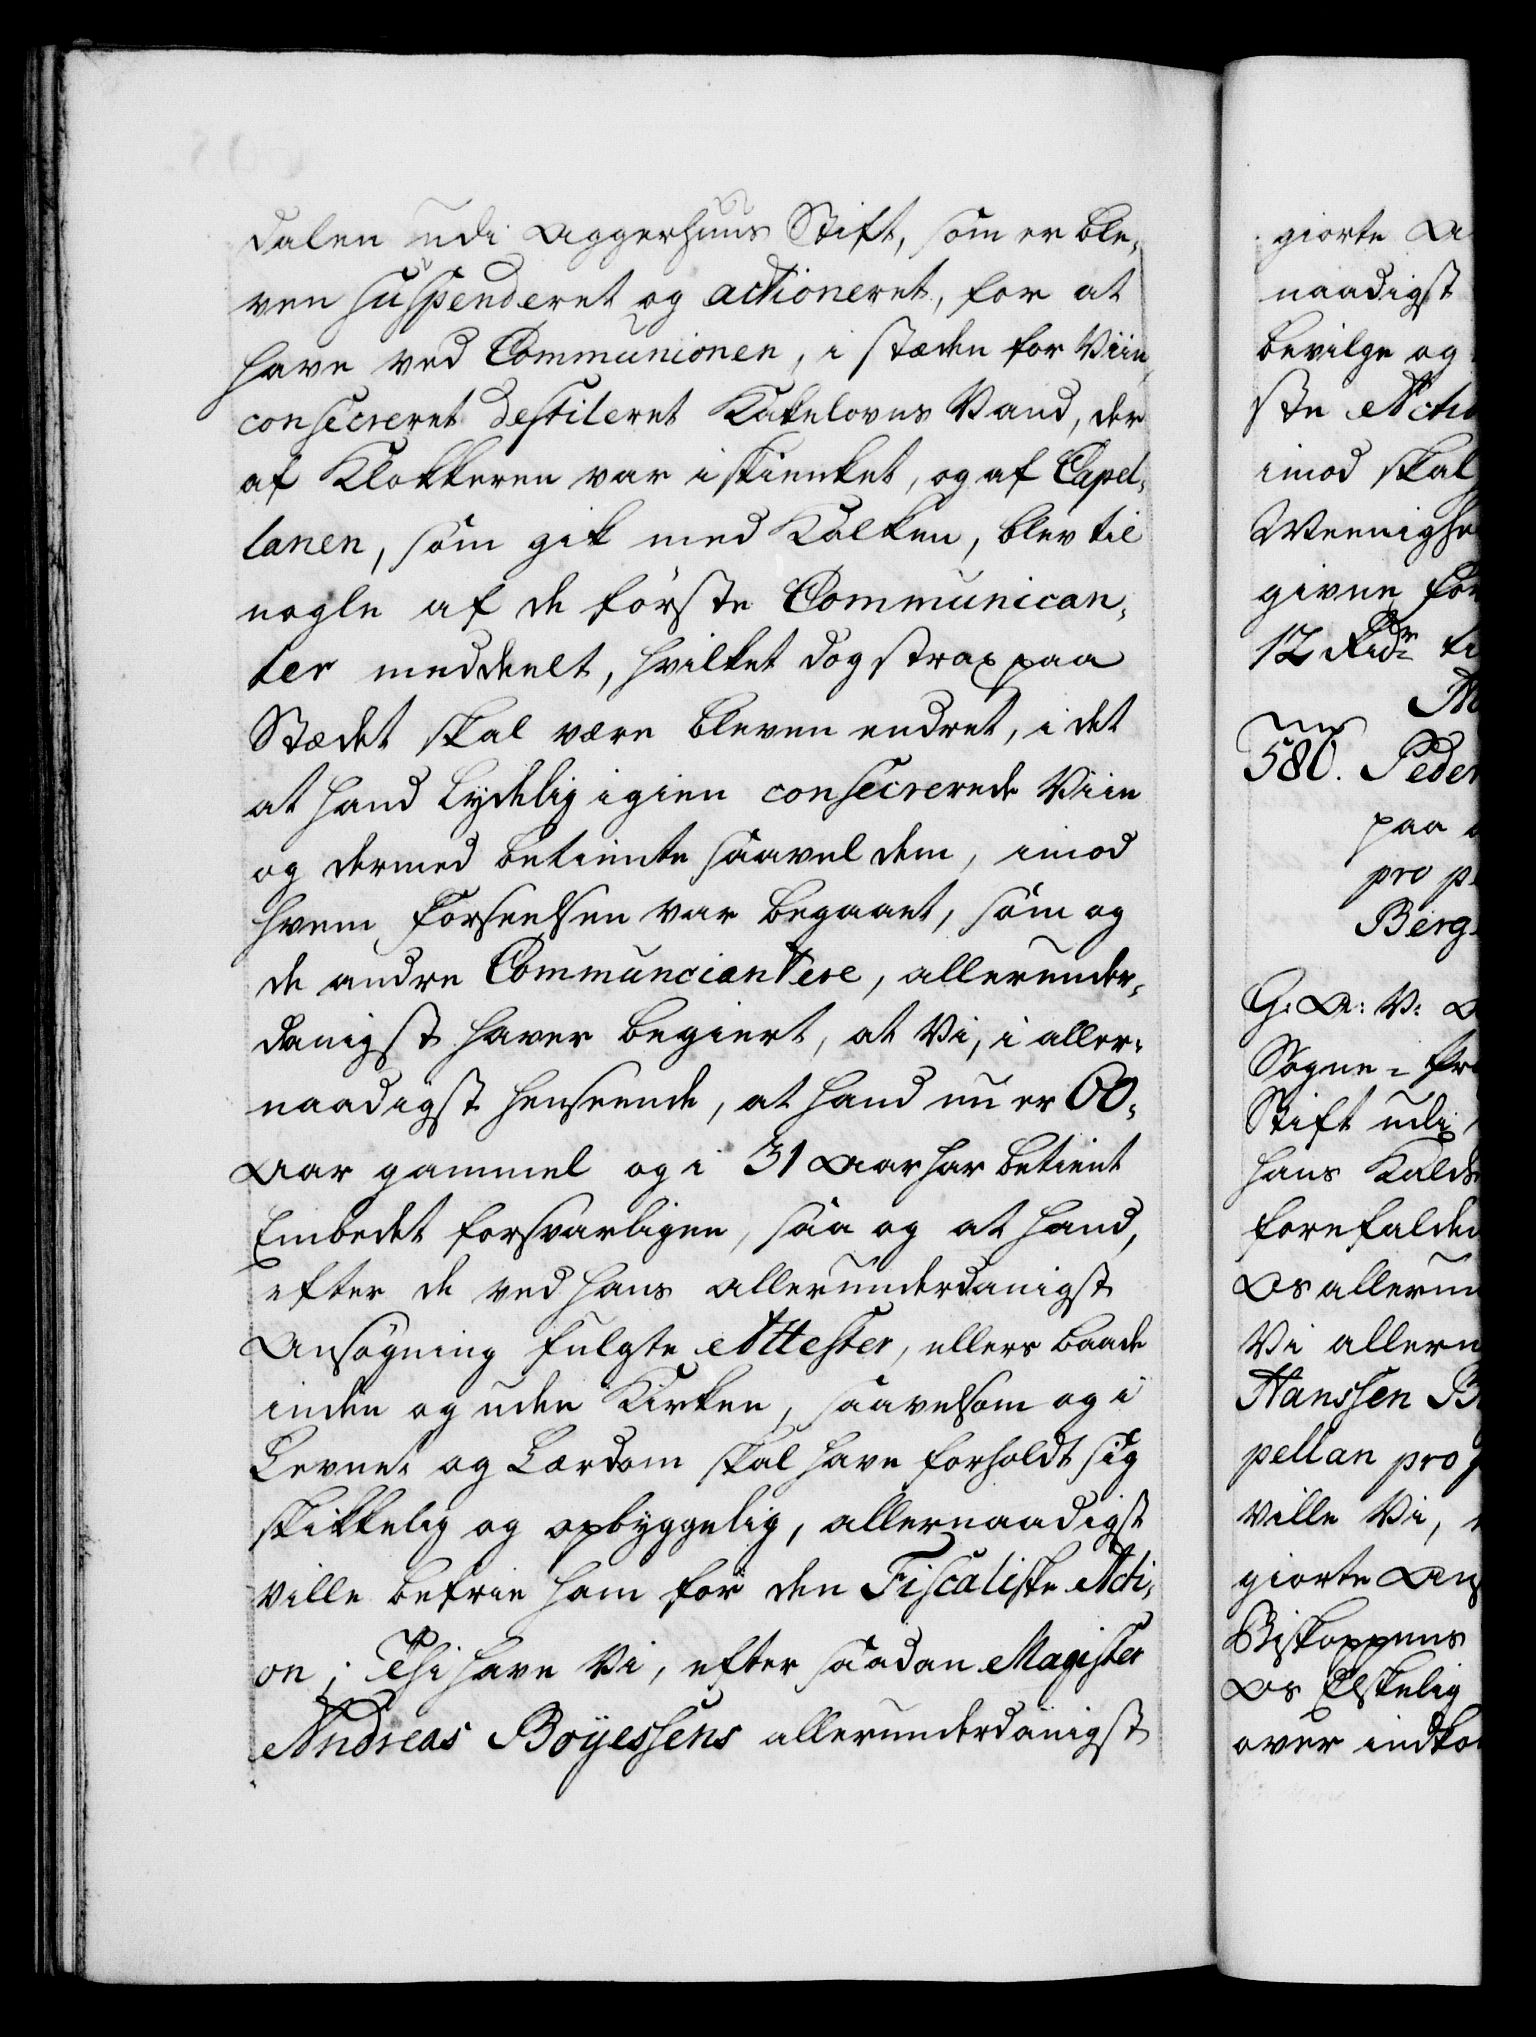 dalen udi Aggershuus Stift, som er ble-
ven suspenderet og actioneret, for at
have ved Communionen, i stæden for Viin,
consecreret destileret Kakelovns Vand, der
af Klokkeren var iskienket, og af Capel-
lanen, som gik med Kalken, blev til
nogle af de förste Communican-
ter meddeelt, hvilket dog strax paa
Stædet skal være bleven endret, i det
at hand lydelig igien consecrerede Viin
og dermed betiente saavel dem, imod
hvem Forseelsen var begaaet, som og
de andre Communciantere, allerunder-
danigst haver begiert, at Vi, i aller-
naadigst henseende, at hand nu er 60-
Aar gammel og i 31 Aar har betient
Embedet forsvarligen, saa og at hand,
efter de ved hans allerunderdanigst
Ansögning fulgte Attester, ellers baade
inden og uden Kirken, saavelsom og i
Levnet og Lærdom skal have forholdt sig
skikkelig og opbyggelig, allernaadigst
ville befrie ham for den Fiscaliske Acti-
on; Thi have Vi, efter saadan Magister
Andreas Boÿessens allerunderdanigst
giorte A
naadigst
bevilge og
ste Actio
imod skal
Meenighe
givne for
12 Rdr ti
580. Peder
paa
pro p
Berg
G: A: V:
Sogne-Pr
Stift udi
hans Kald
forefalden
Os allerun
Vi allern
Hanssen B
pellan pro
ville Vi,
giorte Ans
Biskoppens
Os Elskelig
over indko